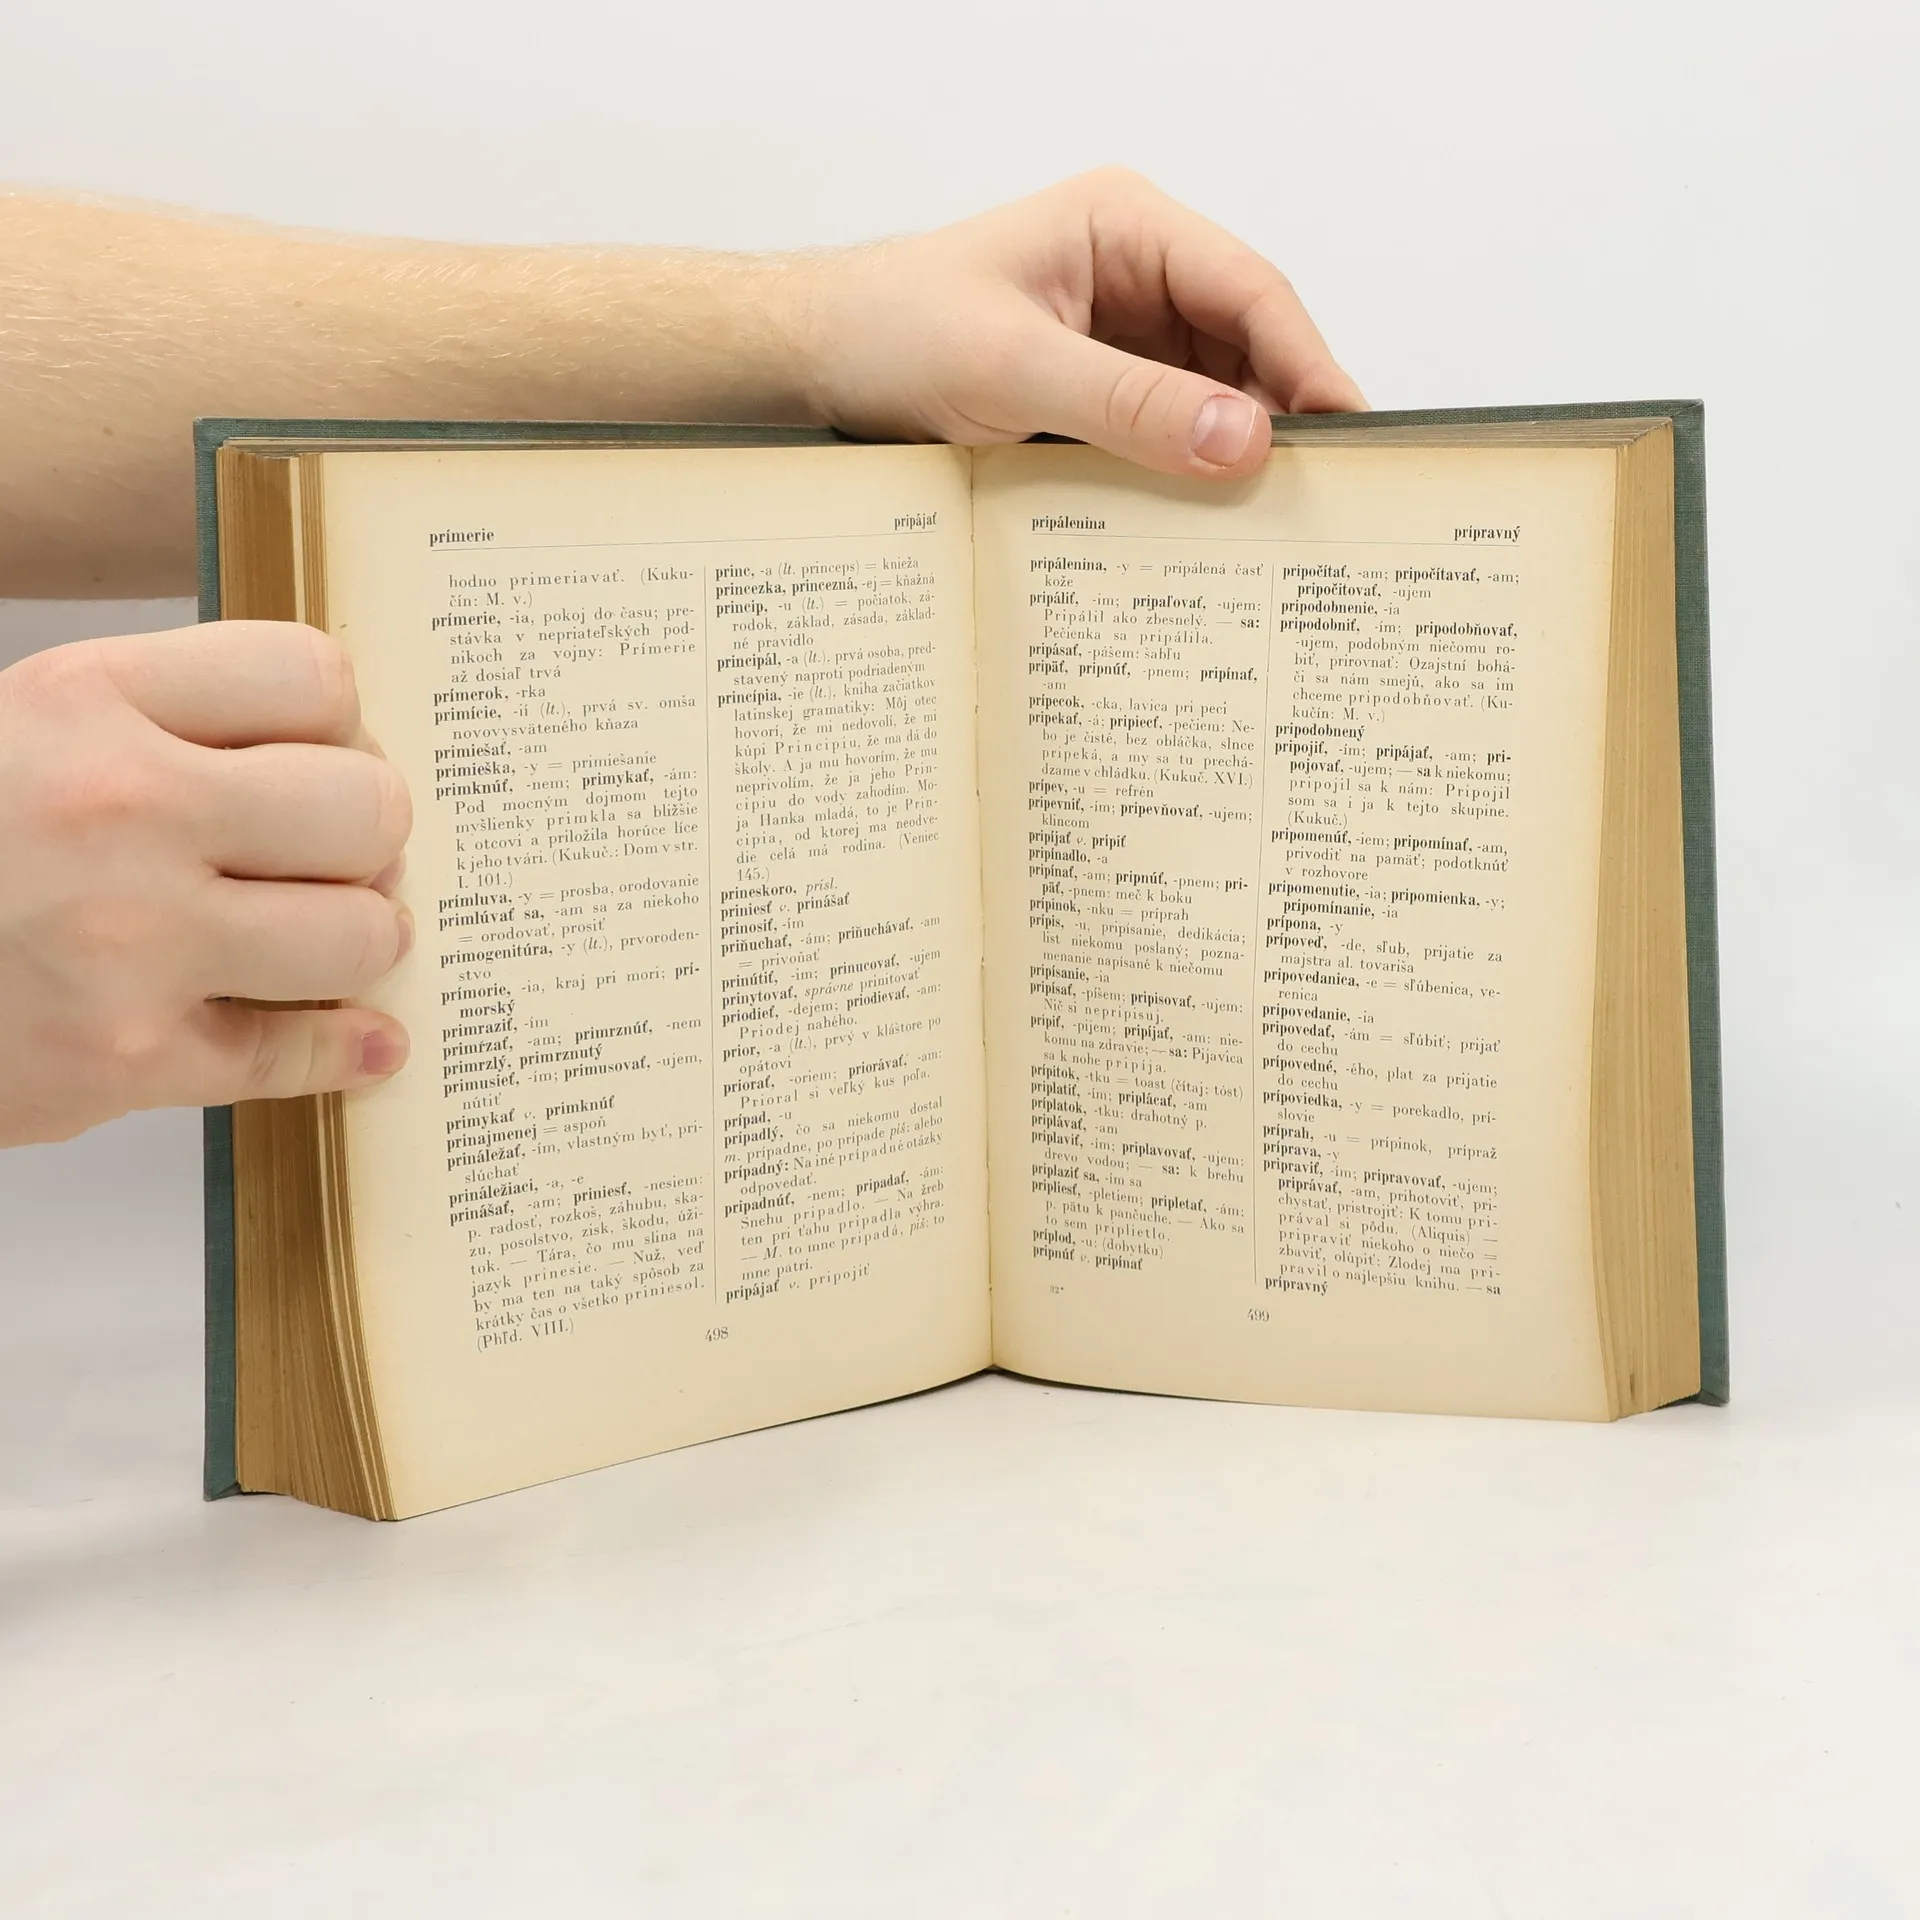 prímerie
pripájať
hodno primeriavať. (Kuku-
čín: M. v.)
prímerie, -ia, pokoj do času; pre-
stávka v nepriateľských pod-
nikoch za vojny: Prímerie
až dosiaľ trvá
prímerok, -rka
primície, -ií (lt.), prvá sv. omša
novovysväteného kňaza
primiešať, -am
primieška, -y = primiešanie
primknúť, -nem; primykať, -ám:
Pod mocným dojmom tejto
myšlienky primkla sa bližšie
k otcovi a priložila horúce líce
k jeho tvári. (Kukuč.: Dom v str.
I. 101.)
prímluva, -y = prosba, orodovanie
primlúvať sa, -am sa za niekoho
= orodovať, prosiť
primogenitúra, -y (lt.), prvoroden-
stvo
prímorie, -ia, kraj pri mori; prí-
morský
primraziť, -ím
primŕzať, -am; primrznúť, -nem
primrzlý, primrznutý
primusieť, -ím; primusovať, -ujem,
nútiť
primykať v. primknúť
prinajmenej = aspoň
prináležať, -ím, vlastným byť, pri-
slúchať
prináležiaci, -a, -e
prinášať, -am; priniesť, -nesiem:
p. radosť, rozkoš, záhubu, ska-
zu, posolstvo, zisk, škodu, úži-
tok. — Tára, čo mu slina na
jazyk prinesie. — Nuž, veď
by ma ten na taký spôsob za
krátky čas o všetko priniesol.
(Phľd. VIII.)
princ, -a (lt. princeps) = knieža
princezka, princezná, -ej = kňažná
princíp, -u (lt.) = počiatok, zá-
rodok, základ, zásada, základ-
né pravidlo
principál, -a (lt.), prvá osoba, pred-
stavený naproti podriadeným
princípia, -ie (lt.), kniha začiatkov
latinskej gramatiky: Môj otec
hovorí, že mi nedovolí, že mi
kúpi Principiu, že ma dá do
školy. A ja mu hovorím, že mu
neprivolím, že ja jeho Prin-
cipiu do vody zahodím. Mo-
ja Hanka mladá, to je Prin-
cipia, od ktorej ma neodve-
die celá má rodina. (Veniec
145.)
prineskoro, prísl.
priniesť v. prinášať
prinosiť, -ím
priňuchať, -ám; priňuchávať, -am
= privoňať
prinútiť, -im; prinucovať, -ujem
prinytovať, správne prinitovať
priodieť, -dejem; priodievať, -am:
Priodej nahého.
prior, -a (lt.), prvý v kláštore po
opátovi
priorať, -oriem; priorávať, -am:
Prioral si veľký kus poľa.
prípad, -u
prípadlý, čo sa niekomu dostal
m. prípadne, po prípade píš: alebo
prípadný: Na iné prípadné otázky
odpovedať.
pripadnúť, -nem; pripadať, -ám:
Snehu pripadlo. — Na žreb
ten pri ťahu pripadla výhra.
— M. to mne pripadá, píš: to
mne patrí.
pripájať v. pripojiť
498
pripálenina
prípravný
pripálenina, -y = pripálená časť
kože
pripáliť, -im; pripaľovať, -ujem:
Pripálil ako zbesnelý. — sa:
Pečienka sa pripálila.
pripásať, -pášem: šabľu
pripäť, pripnúť, -pnem; pripínať,
-am
prípecok, -cka, lavica pri peci
pripekať, -á; pripiecť, -pečiem: Ne-
bo je čisté, bez obláčka, slnce
pripeká, a my sa tu prechá-
dzame v chládku. (Kukuč. XVI.)
prípev, -u = refrén
pripevniť, -ím; pripevňovať, -ujem;
klincom
pripíjať v. pripiť
pripínadlo, -a
pripínať, -am; pripnúť, -pnem; pri-
päť, -pnem: meč k boku
prípinok, -nku = príprah
prípis, -u, pripísanie, dedikácia;
list niekomu poslaný; pozna-
menanie napísané k niečomu
pripísanie, -ia
pripísať, -píšem; pripisovať, -ujem:
Nič si nepripisuj.
pripiť, -pijem; pripíjať, -am: nie-
komu na zdravie; — sa: Pijavica
sa k nohe pripíja.
prípitok, -tku = toast (čítaj: tóst)
priplatiť, -ím; priplácať, -am
príplatok, -tku: drahotný p.
priplávať, -am
priplaviť, -ím; priplavovať, -ujem:
drevo vodou; — sa: k brehu
priplaziť sa, -ím sa
pripliesť, -pletiem; pripletať, -ám:
p. pätu k pančuche. — Ako sa
to sem priplietlo.
príplod, -u: (dobytku)
pripnúť v. pripínať
32*
pripočítať, -am; pripočítavať, -am;
pripočitovať, -ujem
pripodobnenie, -ia
pripodobniť, -ím; pripodobňovať,
-ujem, podobným niečomu ro-
biť, prirovnať: Ozajstní bohá-
či sa nám smejú, ako sa im
chceme pripodobňovať. (Ku-
kučín: M. v.)
pripodobnený
pripojiť, -ím; pripájať, -am; pri-
pojovať, -ujem; — sa k niekomu;
pripojil sa k nám: Pripojil
som sa i ja k tejto skupine.
(Kukuč.)
pripomenúť, -iem; pripomínať, -am,
privodiť na pamäť; podotknúť
v rozhovore
pripomenutie, -ia; pripomienka, -y;
pripomínanie, -ia
prípona, -y
prípoveď, -de, sľub, prijatie za
majstra al. tovariša
pripovedanica, -e = sľúbenica, ve-
renica
pripovedanie, -ia
pripovedať, -ám = sľúbiť; prijať
do cechu
prípovedné, -ého, plat za prijatie
do cechu
prípoviedka, -y = porekadlo, prí-
slovie
príprah, -u = prípinok, prípraž
príprava, -y
pripraviť, -ím; pripravovať, -ujem;
priprávať, -am, prihotoviť, pri-
chystať, pristrojiť: K tomu pri-
prával si pôdu. (Aliquis) —
pripraviť niekoho o niečo =
zbaviť, olúpiť: Zlodej ma pri-
pravil o najlepšiu knihu. — sa
prípravný
499